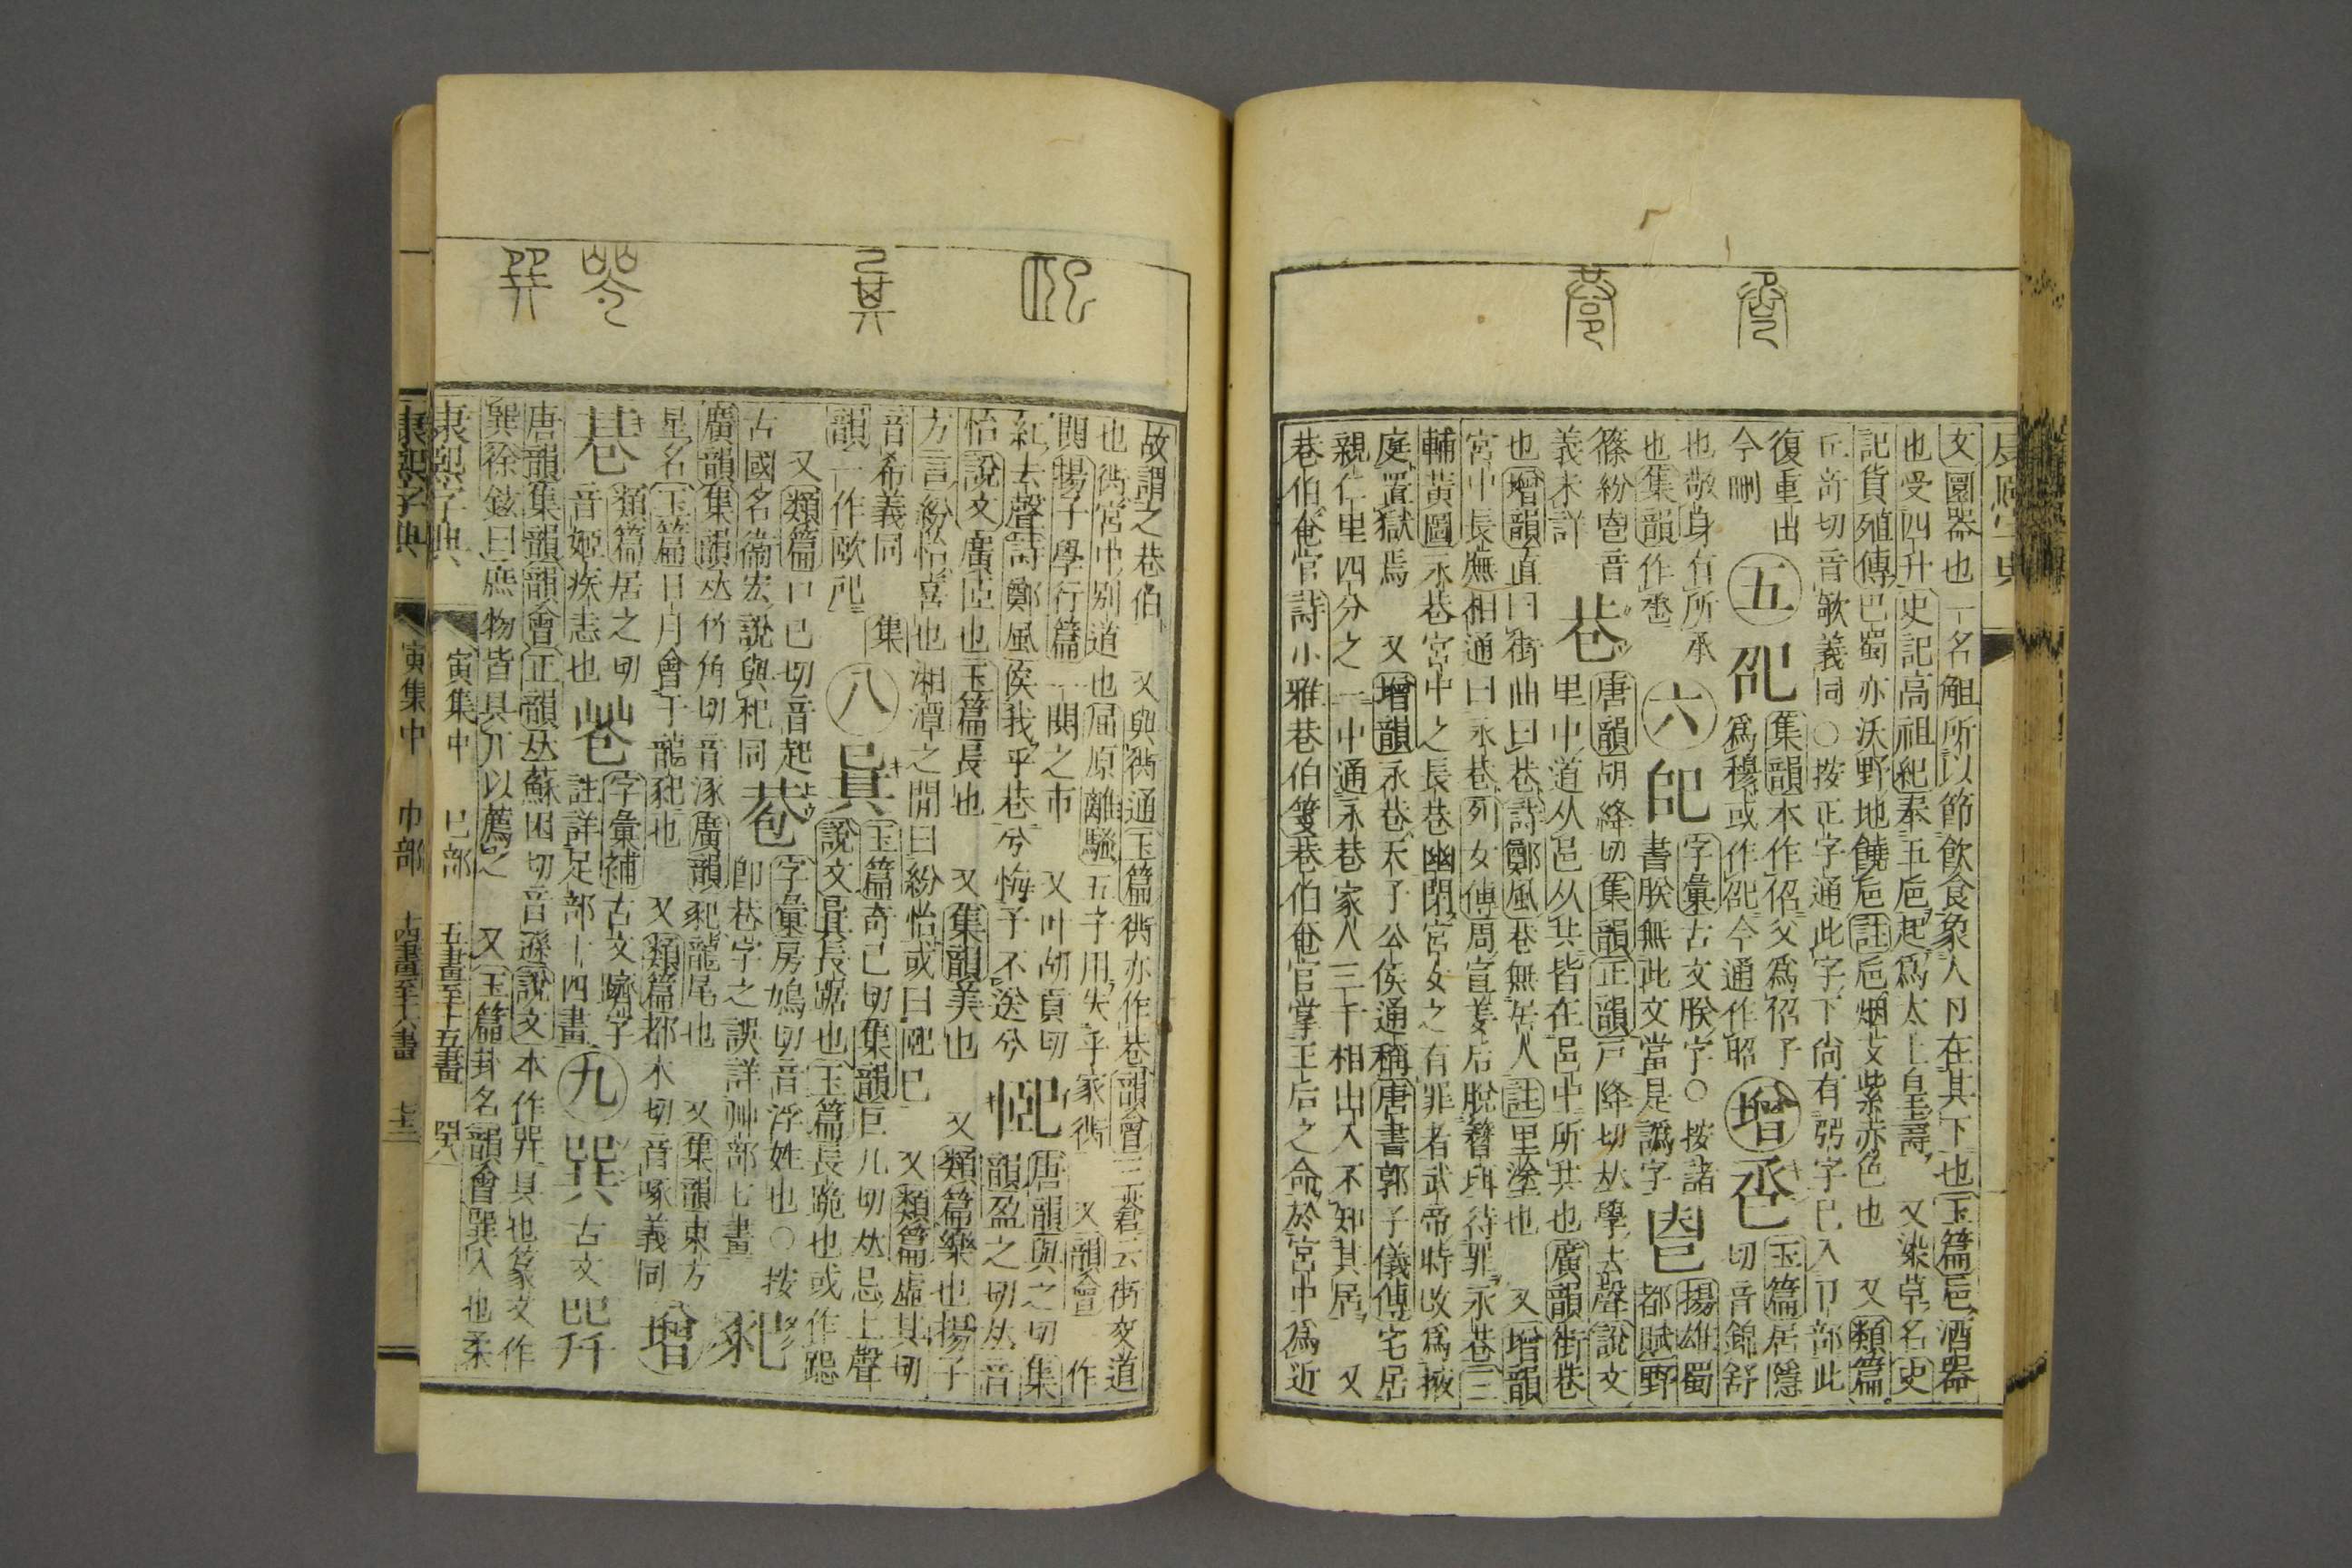 文圜器也一名觛所以節飲食象人卪在其下也玉篇巵酒器
也受四升史記高祖紀奉玉巵起爲太上皇壽 又染草名史
記貨殖傳巴蜀亦沃野地饒巵註巵烟支紫赤色也 又類篇
丘奇切音欹義同○按正字通此字下尚有弜字已入卩部此
復重出
今刪
五
卲
集韻本作佋父爲佋子
爲穆或作卲今通作昭
增
巹
玉篇居隱
切音錦舒
也敬身有所承
也集韻作卺
六
字彙古文朕字○按諸
書朕無此文當是譌字
揚雄蜀
都賦野
篠紛鬯音
義未詳
巷
唐韻胡絳切集韻正韻戸降切𠀤學去聲說文
里中道从邑从共皆在邑中所共也廣韻街巷
也增韻直曰街曲曰巷詩鄭風巷無居人註里塗也 又增韻
宮中長廡相通曰永巷列女傳周宣姜后脫簪珥待罪永巷三
輔黃圖永巷宮中之長巷幽閉宮女之有罪者武帝時改爲掖
庭置獄焉 又增韻永巷天子公侯通稱唐書郭子儀傳宅居
親仁里四分之一中通永巷家人三千相出入不知其居 又
巷伯奄官詩小雅巷伯箋巷伯奄官掌王后之命於宮中爲近
故謂之巷伯 又與衖通玉篇衖亦作巷韻會三蒼云街交道
也衖宮中別道也屈原離騷五子用失乎家衖 又韻會 作
閧揚子學行篇一閧之市 又叶胡貢切
紅去聲詩鄭風俟我乎巷兮悔予不送兮
巸
唐韻與之切集
韻盈之切𠀤音
怡說文廣𦣞也玉篇長也 又集韻美也 又類篇樂也揚子
方言紛怡喜也湘潭之閒曰紛怡或曰巸已 又類篇虛其切
音希義同 集
韻一作㰻
八
㠱
玉篇奇己切集韻巨几切𠀤忌上聲
說文㠱長踞也玉篇長跪也或作跽
又類篇口已切音起
古國名衞宏說與杞同
字彙房鳩切音浮姓也○按
卽巷字之誤詳艸部七畫
廣韻集韻𠀤竹角切音涿廣韻龍尾也 又集韻東方
星名玉篇日月會于龍㞘也 又類篇都木切音啄義同
增
類篇居之切
音姬疾志也
字彙補古文躋字
註詳足部十四畫
九
巽
古文
唐韻集韻韻會正韻𠀤蘇困切音遜說文本作巺具也篆文作
巽徐鉉曰庶物皆具丌以薦之 又玉篇卦名韻會巽入也柔
康熙字典 寅集中 已部 五畫至十五畫 四八
康熙字典 寅集中 巾部